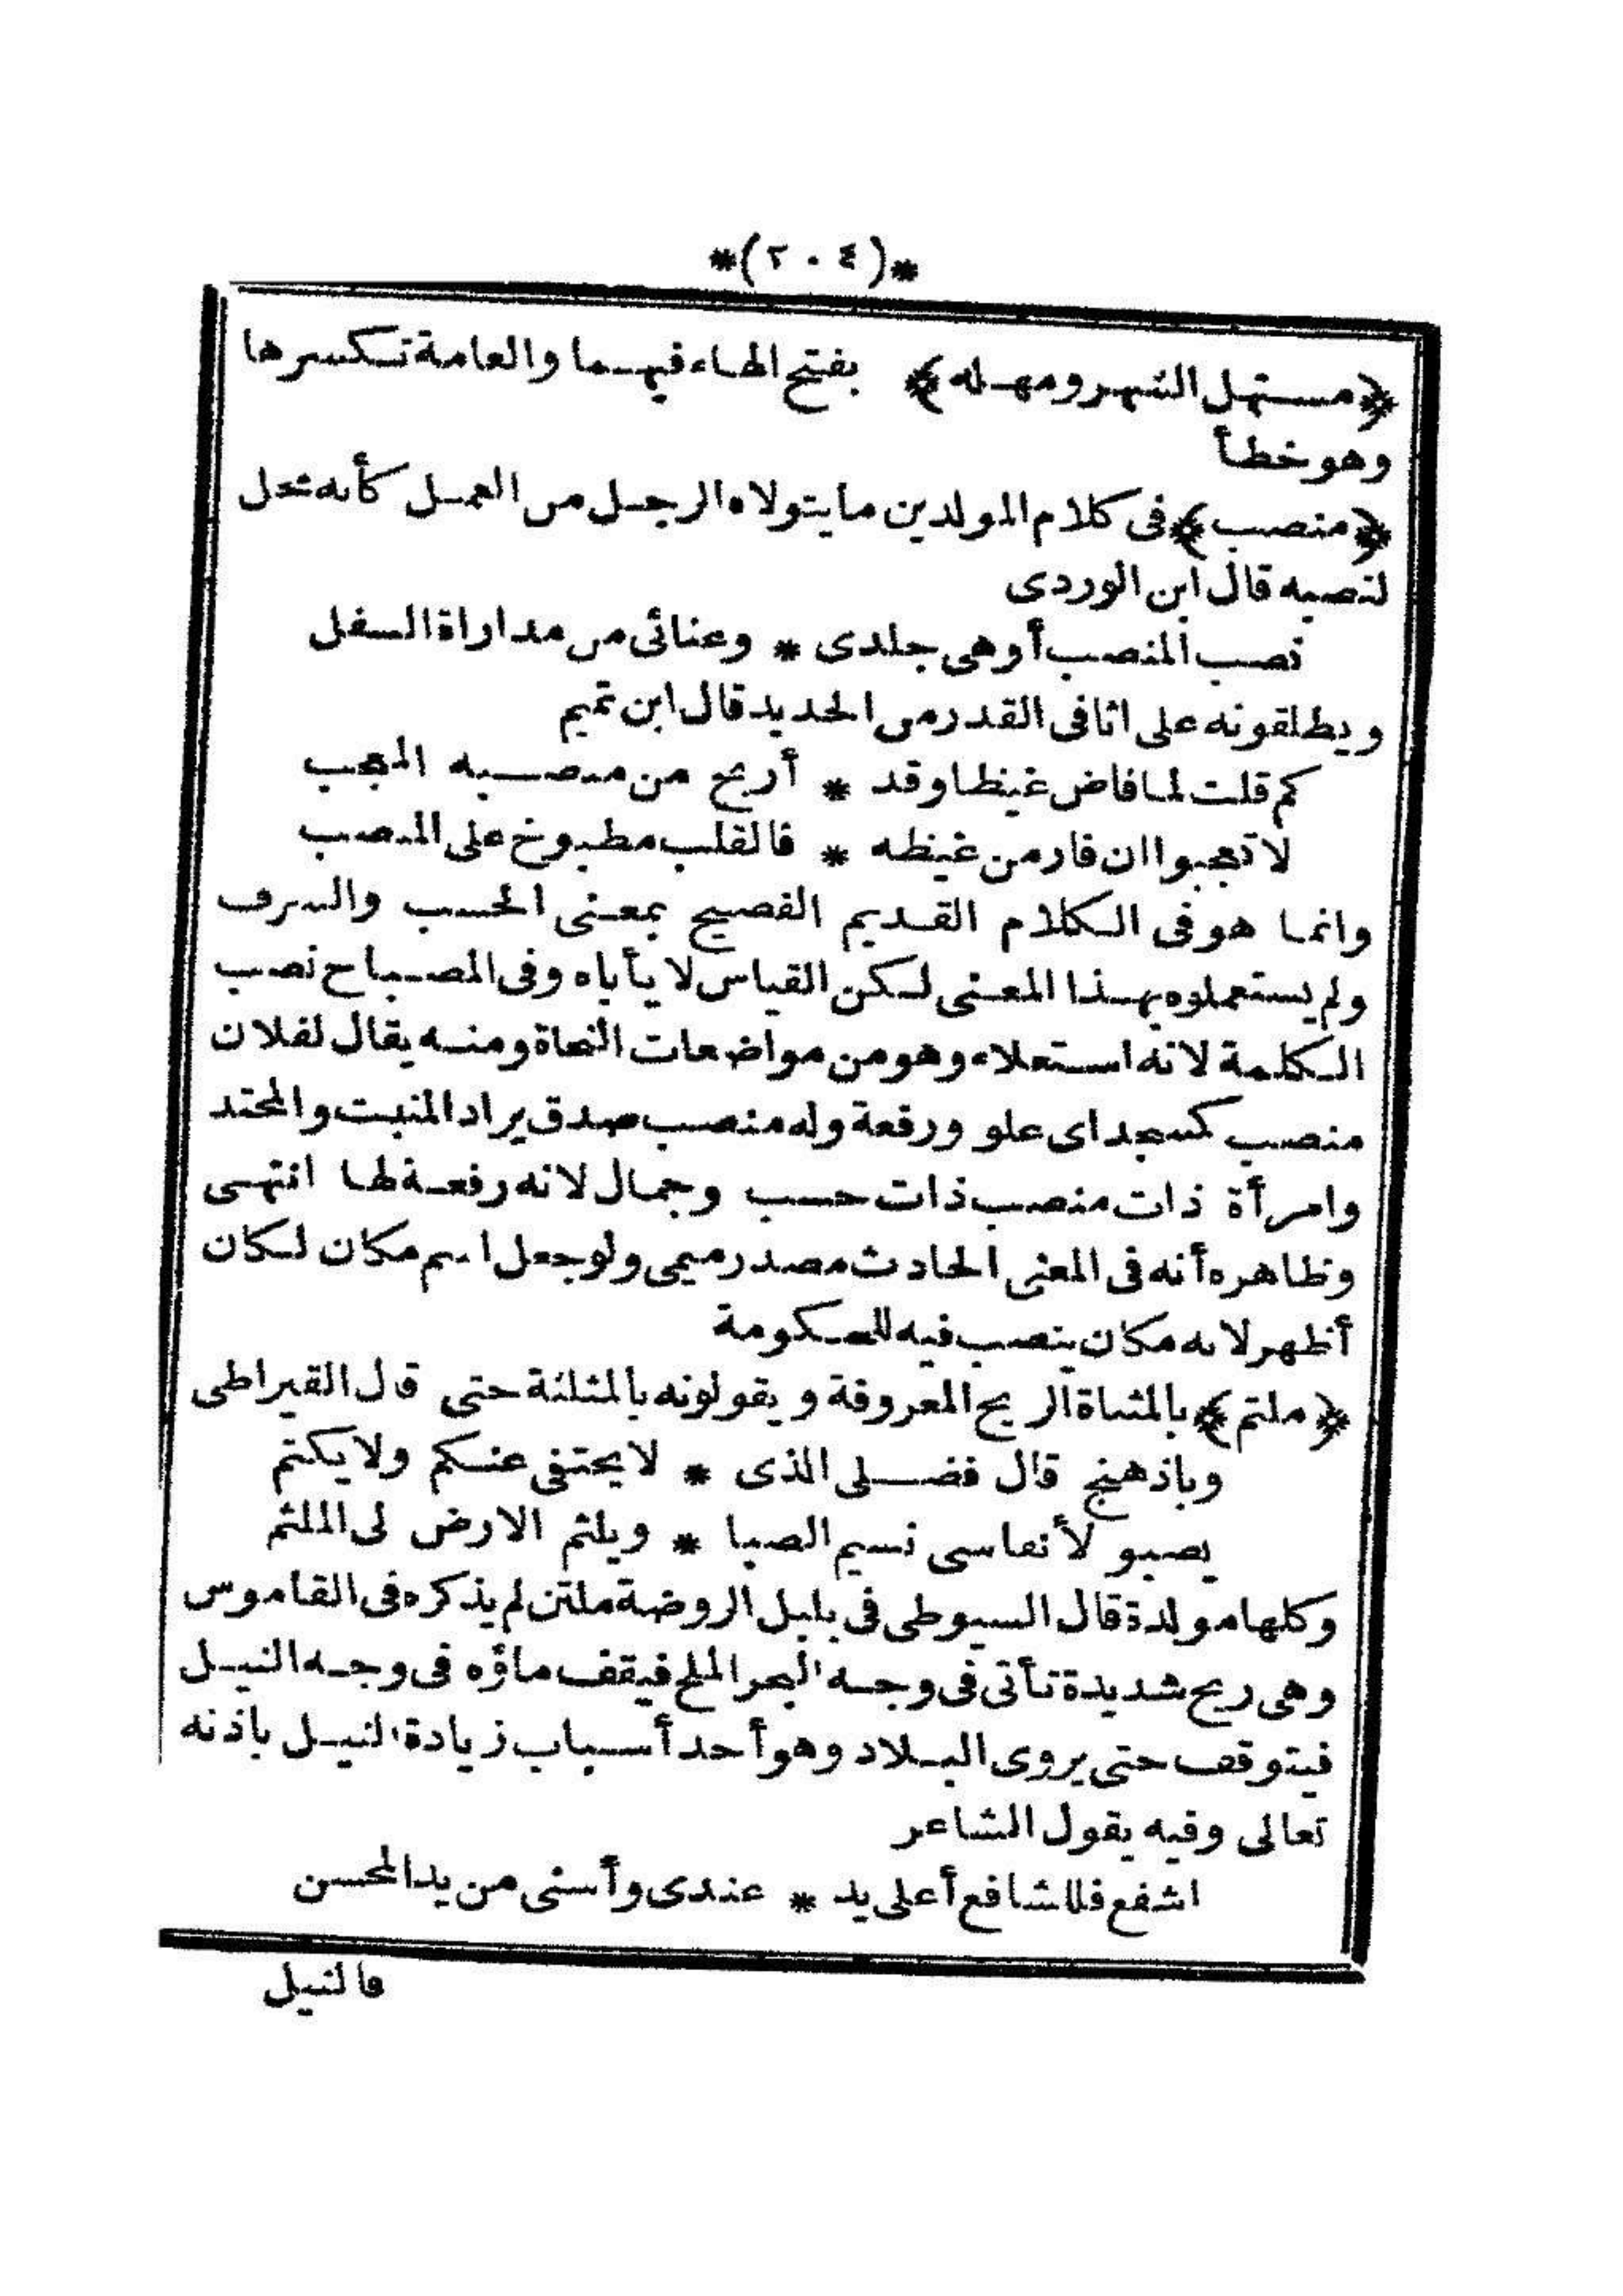 *(٢٠٤)*
﴿مستهل الشهر ومهله﴾ بفتح الهاء فيهما والعامة تكسرها
وهو خطأ
﴿منصب﴾ فى كلام المولدين ما يتولاه الرجل من العمل كأنه محل
لنصبه قال ابن الوردى
نصب المنصب أوهى جلدى * وعنائى من مداراة السفل
ويطلقونه على اثافى القدر من الحديد قال ابن تميم
كم قلت لما فاض غيظا وقد * أريح من منصبه المعجب
لا تعجبوا ان فار من غيظه * فالقلب مطبوخ على المنصب
وانما هو فى الكلام القديم الفصيح بمعنى الحسب والشرف
ولم يستعملوه بهذا المعنى لكن القياس لا يأباه وفى المصباح نصب
الكلمة لانه استعلاء وهو من مواضعات النحاة ومنه يقال لفلان
منصب كمسجد اى علو ورفعة وله منصب صدق يراد المنبت والمحتد
وامرأة ذات منصب ذات حسب وجمال لانه رفعة لها انتهى
وظاهره أنه فى المعنى الحادث مصدر ميمى ولو جعل اسم مكان لكان
أظهر لانه مكان ينصب فيه للحكومة
﴿ملتم﴾ بالمثناة الريح المعروفة ويقولونه بالمثلثة حتى قال القيراطى
وباذهنج قال فضلى الذى * لا يختفى عنكم ولا يكتم
يصبو لأنفاسى نسيم الصبا * ويلثم الارض لى الملثم
وكلها مولدة قال السيوطى فى بلبل الروضة ملتن لم يذكره فى القاموس
وهى ريح شديدة تأتى فى وجه البحر الملح فيقف ماؤه فى وجه النيل
فيتوقف حتى يروى البلاد وهو أحد أسباب زيادة النيل باذنه
تعالى وفيه يقول الشاعر
اشفع فللشافع أعلى يد * عندى وأسنى من يد المحسن
فالنيل